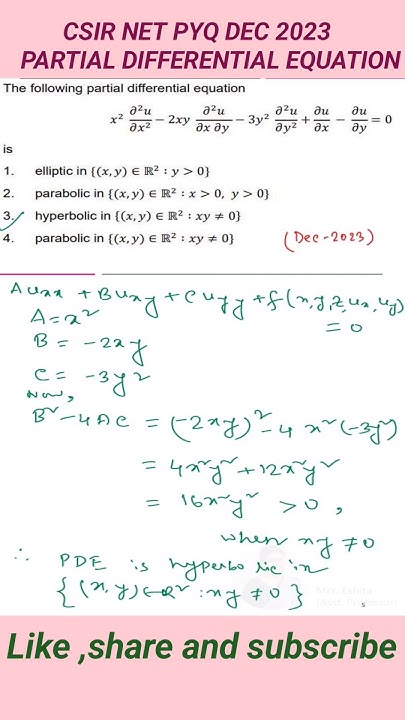 CSIR NET PYQ DEC 2023
PARTIAL DIFFERENTIAL EQUATION
The following partial differential equation
x² ∂²u/∂x² − 2xy ∂²u/∂x ∂y − 3y² ∂²u/∂y² + ∂u/∂x − ∂u/∂y = 0
is
1. elliptic in {(x, y) ∈ ℝ² : y > 0}
2. parabolic in {(x, y) ∈ ℝ² : x > 0, y > 0}
3. hyperbolic in {(x, y) ∈ ℝ² : xy ≠ 0}
4. parabolic in {(x, y) ∈ ℝ² : xy ≠ 0}
(Dec-2023)
A uxx + B uxy + C uyy + f(x, y, z, ux, uy) = 0
A = x²
B = −2xy
C = −3y²
Now,
B² − 4AC = (−2xy)² − 4 x²(−3y²)
= 4x²y² + 12x²y²
= 16x²y² > 0,
when xy ≠ 0
∴ PDE is hyperbolic in
{(x, y) ∈ ℝ² : xy ≠ 0}
Miss Eshita
(Asst. Professor)
5
Like ,share and subscribe